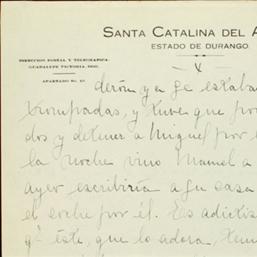 SANTA CATALINA DEL A
ESTADO DE DURANGO.
DIRECCION POSTAL Y TELEGRAFICA:
GUADALUPE VICTORIA, DGO.
APARTADO No.
X
ya se estaba
trompadas, y tuve que
dos y detener a Miguel por
la noche vino Manuel a
ayer escribiría a su casa
el coche por él. Es
q' éste, que lo adora,